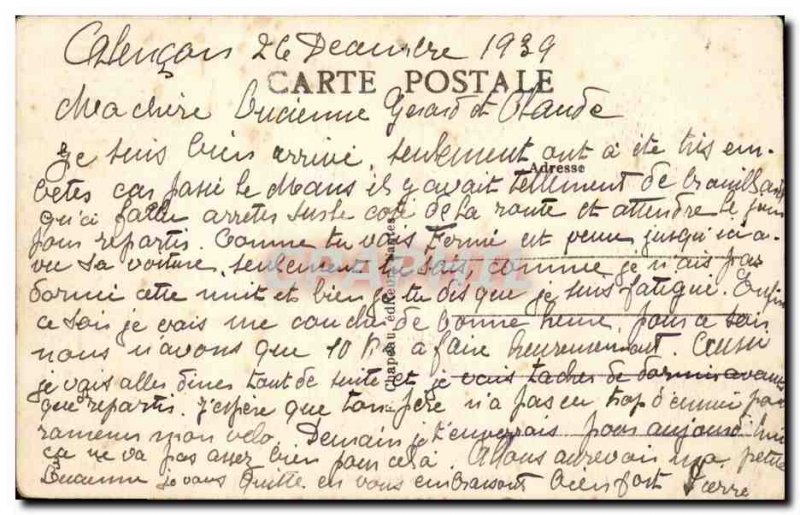 Alençon 26 Decembre 1939
CARTE POSTALE
Ma chère Lucienne Gerard et Claude
Je suis bien arrivé, seulement ont à été tres em-
Adresse
betes car passé le Mans il y avait tellement de brouillard
qu'a fallu arretes sur le coté de la route et attendre le jour
pour repartis. Comme tu vois Fermé est venu jusqu'ici a-
vec sa voiture, seulement tu sais, comme je n'ais pas
dormi cette nuit et bien je te dis que je suis fatigué. Enfin
ce soir je vais me coucher de bonne heure, pour ce soir
nous n'avons que 10 à faire heureusement. Aussi
je vais alles dines tout de suite et je vais taches de dormir avant
que repartis. J'espère que ton père n'a pas eu trop d'ennui pour
ramener mon velo. Demain je t'enverrais pour aujourd'hui
ça ne va pas assez bien pour celà. Allons aurevoir ma petite
Lucienne je vous quitte en vous embrassant bien fort Pierre
Chapeau éditeur Nantes